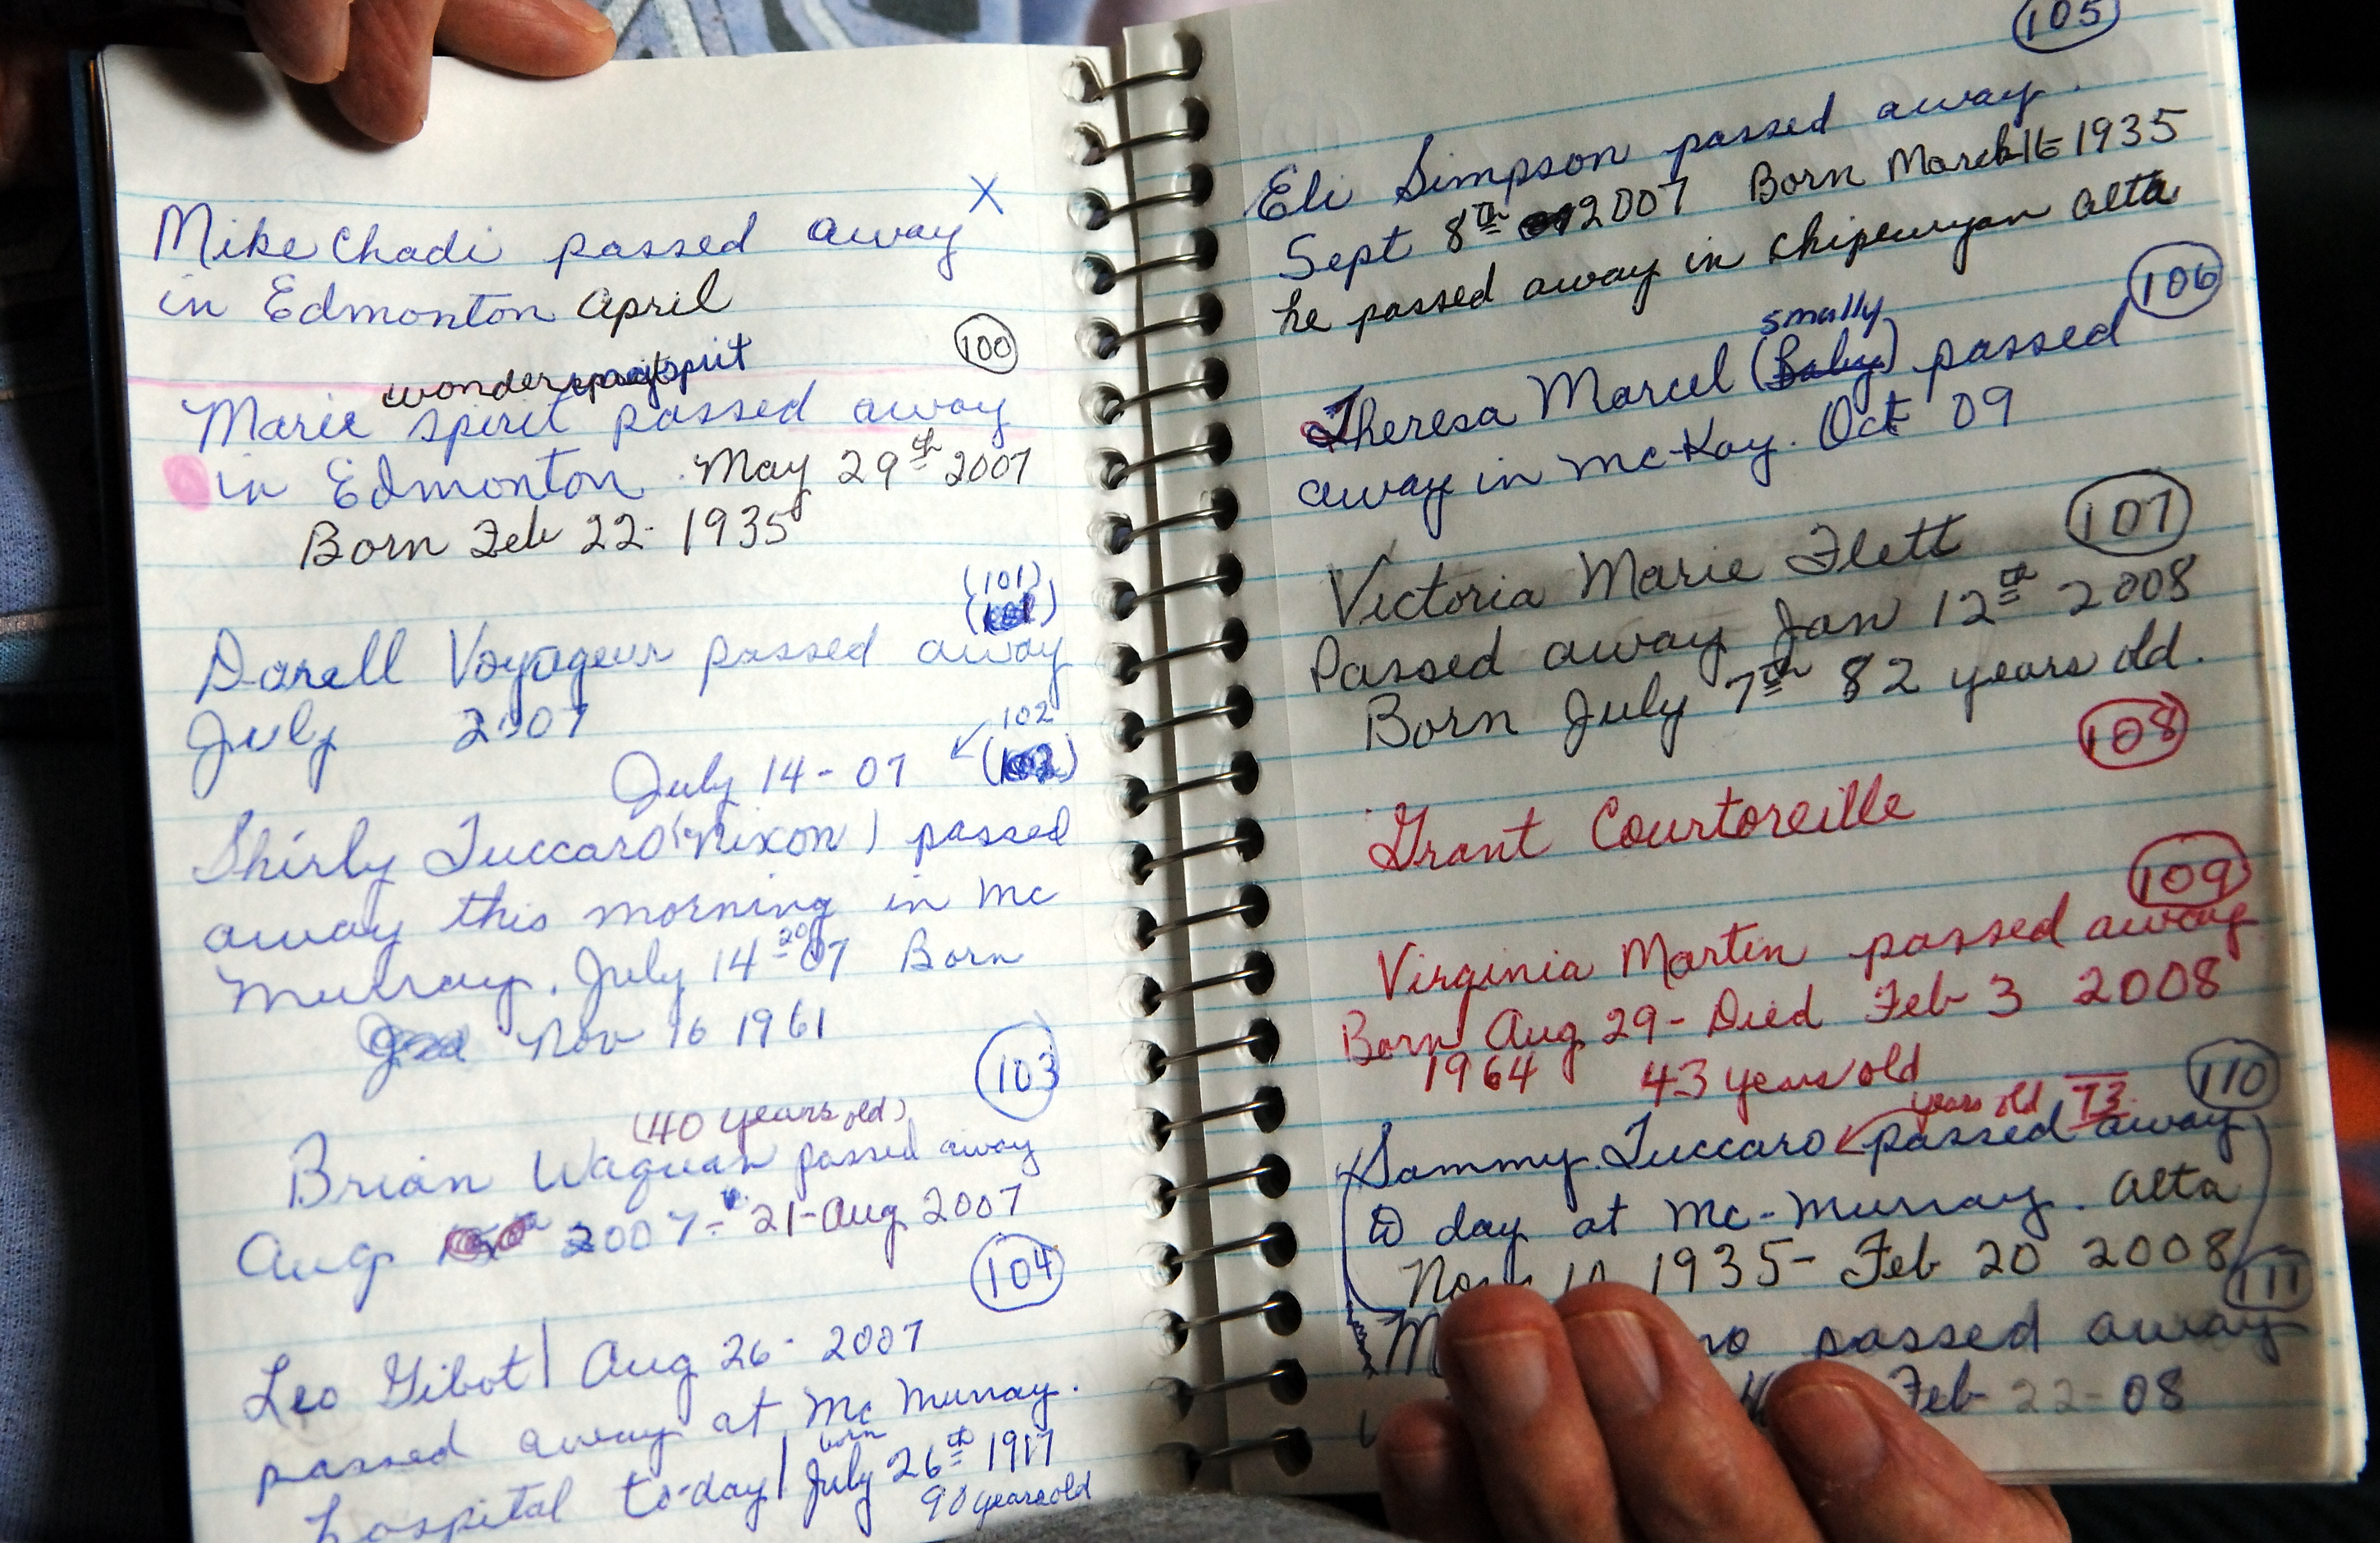 Mike Chadi passed away X
in Edmonton April
100
wonder spirit
Marie spirit passed away
in Edmonton. May 29th 2007
Born Feb 22- 1935
(101)
Darell Voyageur passed away
July 2007
102
July 14-07 (102)
Shirly Tuccaro (Nixon) passed
away this morning in Mc
Murray. July 14-2007 Born
Nov 16 1961
103
(40 years old)
Brian Waquan passed away
Aug 2007- 21-Aug 2007
104
Leo Gibot | Aug 26- 2007
passed away at Mc Murray.
born
hospital to-day | July 26th 1917
90 years old
105
Eli Simpson passed away.
Sept 8th 2007 Born March 16-1935
he passed away in Chipewyan Alta
106
smally
Theresa Marcel (Baby) passed
away in Mc-Kay. Oct 09
107
Victoria Marie Flett
Passed away Jan 12th 2008
Born July 7th 82 years old.
108
Grant Courtoreille
109
Virginia Martin passed away
Born Aug 29- Died Feb 3 2008
1964 43 years old
110
years old 73
Sammy Tuccaro passed away
to day at Mc-Murray. Alta
1935- Feb 20 2008
111
passed away
Feb 22-08